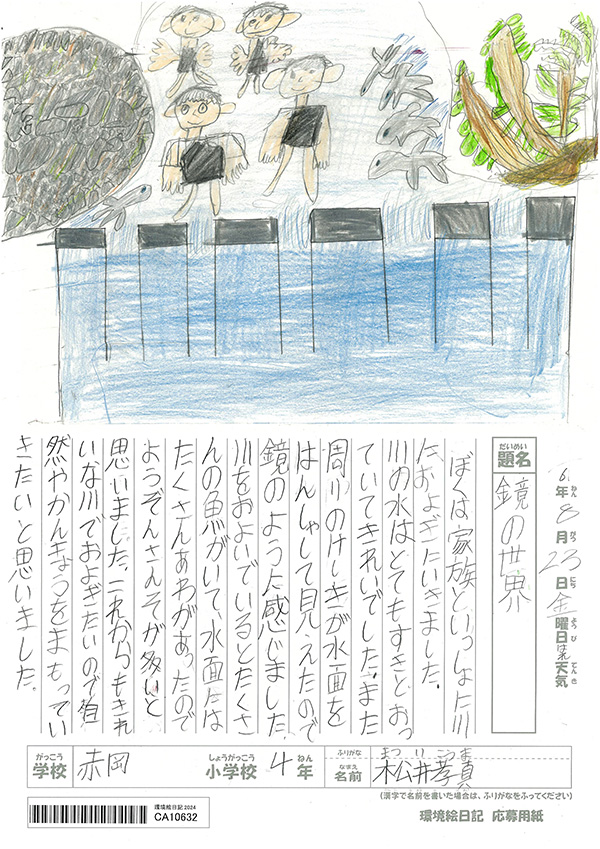 6年8月23日金曜日はれ天気
ねん
がつ
にち
よう び
てん き
だいめい
題名
鏡の世界
ぼくは家族といっしょに川
におよぎにいきました。
川の水はとてもすきとおっ
ていてきれいでした。また
周りのけしきが水面を
はんしゃして見えたので
鏡のような感じました。
川をおよいでいるとたくさ
んの魚がいて、水面には
たくさんあわがあったので
ようぞんさんそが多いと
思いました。これからもきれ
いな川でおよぎたいので自
然やかんきょうをまもってい
きたいと思いました。
がっこう
学校
赤岡
しょうがっこう
小学校
4年
ねん
ふりがな
なまえ
名前
松井孝真
(漢字で名前を書いた場合は、ふりがなをふってください)
環境絵日記2024
CA10632
環境絵日記 応募用紙